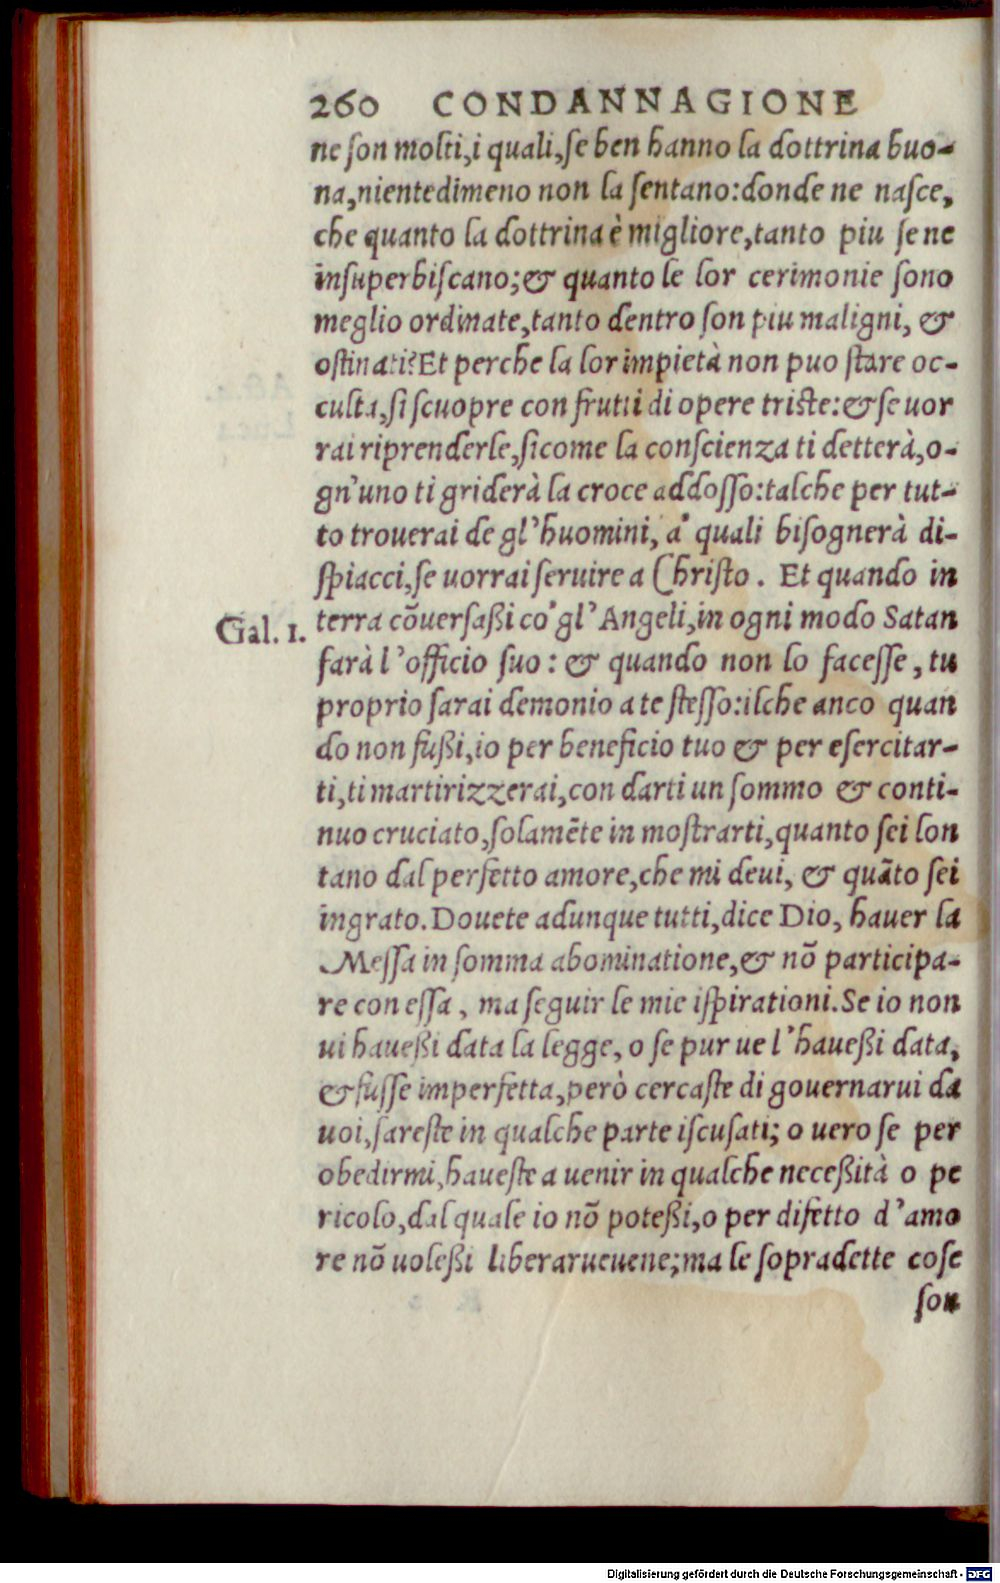 260 CONDANNAGIONE
ne ſon molti, i quali, ſe ben hanno la dottrina buo-
na, nientedimeno non la ſentano: donde ne naſce,
che quanto la dottrina è migliore, tanto piu ſe ne
inſuperbiſcano; & quanto le lor cerimonie ſono
meglio ordinate, tanto dentro ſon piu maligni, &
oſtinati? Et perche la lor impietà non puo ſtare oc-
culta, ſi ſcuopre con frutti di opere triſte: & ſe uor
rai riprenderle, ſicome la conſcienza ti detterà, o-
gn'uno ti griderà la croce addoſſo: talche per tut-
to trouerai de gl'huomini, a' quali biſognerà di-
ſpiacci, ſe uorrai ſeruire a Chriſto. Et quando in
Gal. 1.
terra cõuerſaßi co' gl'Angeli, in ogni modo Satan
farà l'officio ſuo: & quando non lo faceſſe, tu
proprio ſarai demonio a te ſteſſo: ilche anco quan
do non fußi, io per beneficio tuo & per eſercitar-
ti, ti martirizzerai, con darti un ſommo & conti-
nuo cruciato, ſolamẽte in moſtrarti, quanto ſei lon
tano dal perfetto amore, che mi deui, & quãto ſei
ingrato. Douete adunque tutti, dice Dio, hauer la
Meſſa in ſomma abominatione, & nõ participa-
re con eſſa, ma ſeguir le mie iſpirationi. Se io non
ui haueßi data la legge, o ſe pur ue l'haueßi data,
& fuſſe imperfetta, però cercaſte di gouernarui da
uoi, ſareſte in qualche parte iſcuſati; o uero ſe per
obedirmi, haueſte a uenir in qualche neceßità o pe
ricolo, dal quale io nõ poteßi, o per difetto d'amo
re nõ uoleßi liberarueuene; ma le ſopradette coſe
ſon
Digitalisierung gefördert durch die Deutsche Forschungsgemeinschaft - DFG